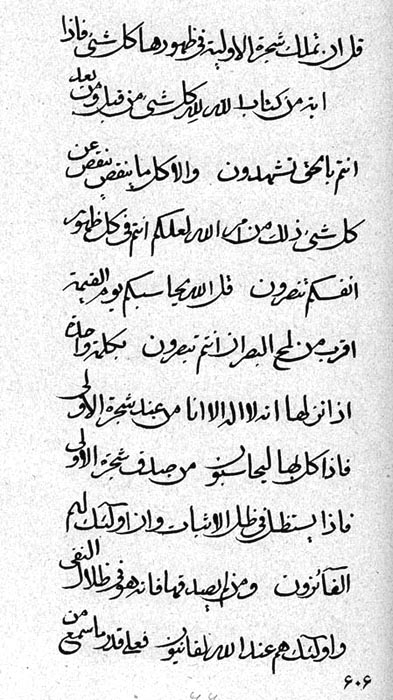 قل ان تملك شجرة الاولية فی ظهورها كل شیء فاذا
اية من كتاب الله لله كل شیء من قبل ومن بعد
انتم بالحق تشهدون والا كل ما ينقص ينقص عن
كل شیء ذلك من امر الله لعلكم انتم فی كل ظهور
انفسكم تنصرون قل الله يحاسبكم يوم القيمة
اقرب من لمح البصر ان انتم تبصرون بكلمة واحدة
اذا نزلها انه لا اله الا انا من عند شجرة الاولی
فاذا كل بها ليحاسبون من صدق شجرة الاولی
فاذا يستظل فی ظل الاثبات وان اولئك لهم
الفائزون ومن لم يصدقها فانه هو فی ظلال النفی
واولئك هم عند الله لفانيون فعلی قدر ما سمع من
۶۰۶